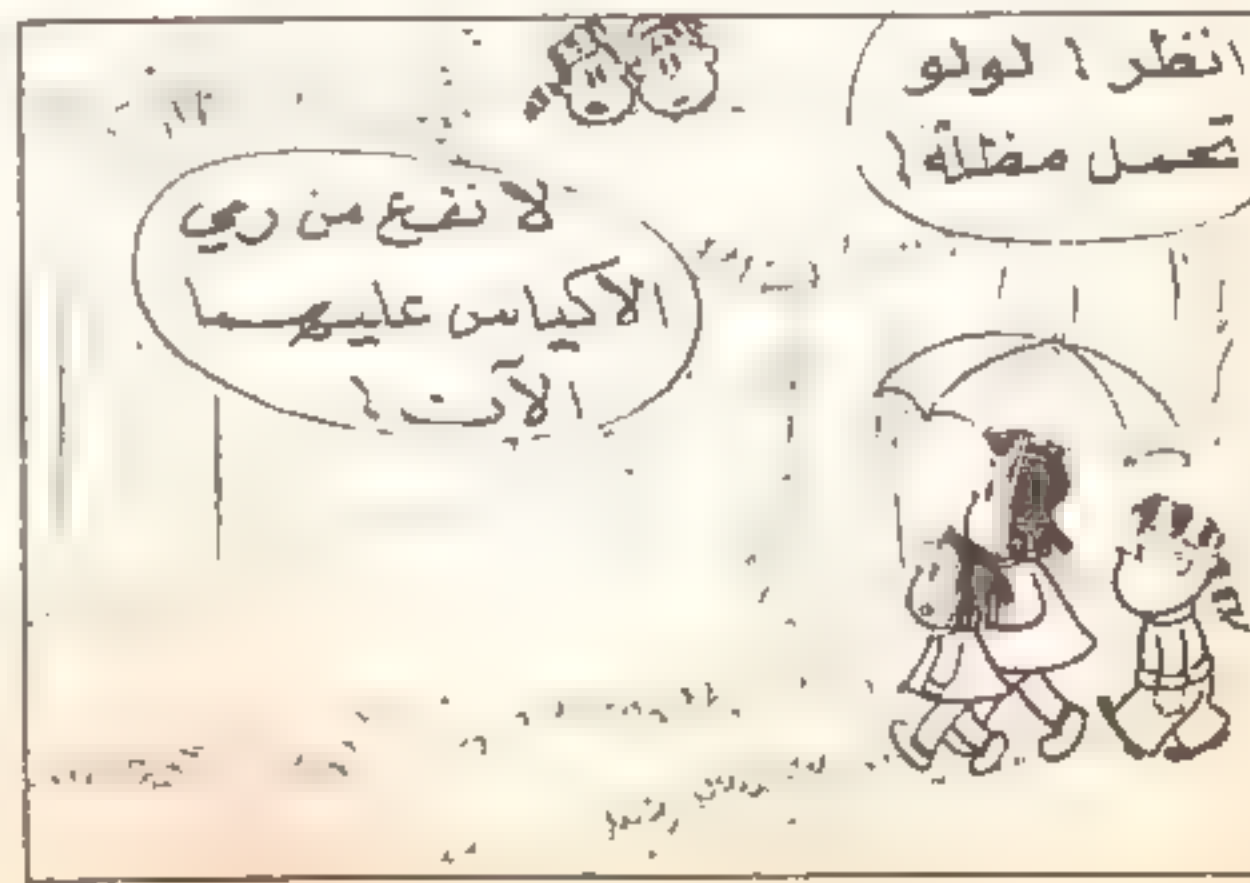 انظر ! لولو
تحمل مظلة !
لا نفع من رمي
الاكياس عليهما
الآن !